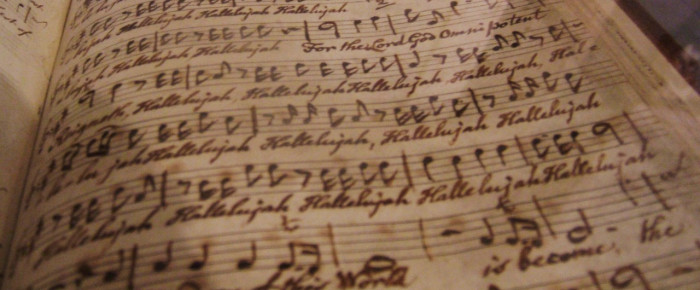 Hallelujah Hallelujah Hallelujah
Hallelujah Hallelujah For the Lord God Omnipotent
Reigneth, Hallelujah, Hallelujah Hallelujah Hallelujah, Hal=
le lu jah Hallelujah Hallelujah, Hallelujah Hallelujah
Hallelujah Hallelujah Hallelujah Hallelujah Hallelujah
of this World is become, the